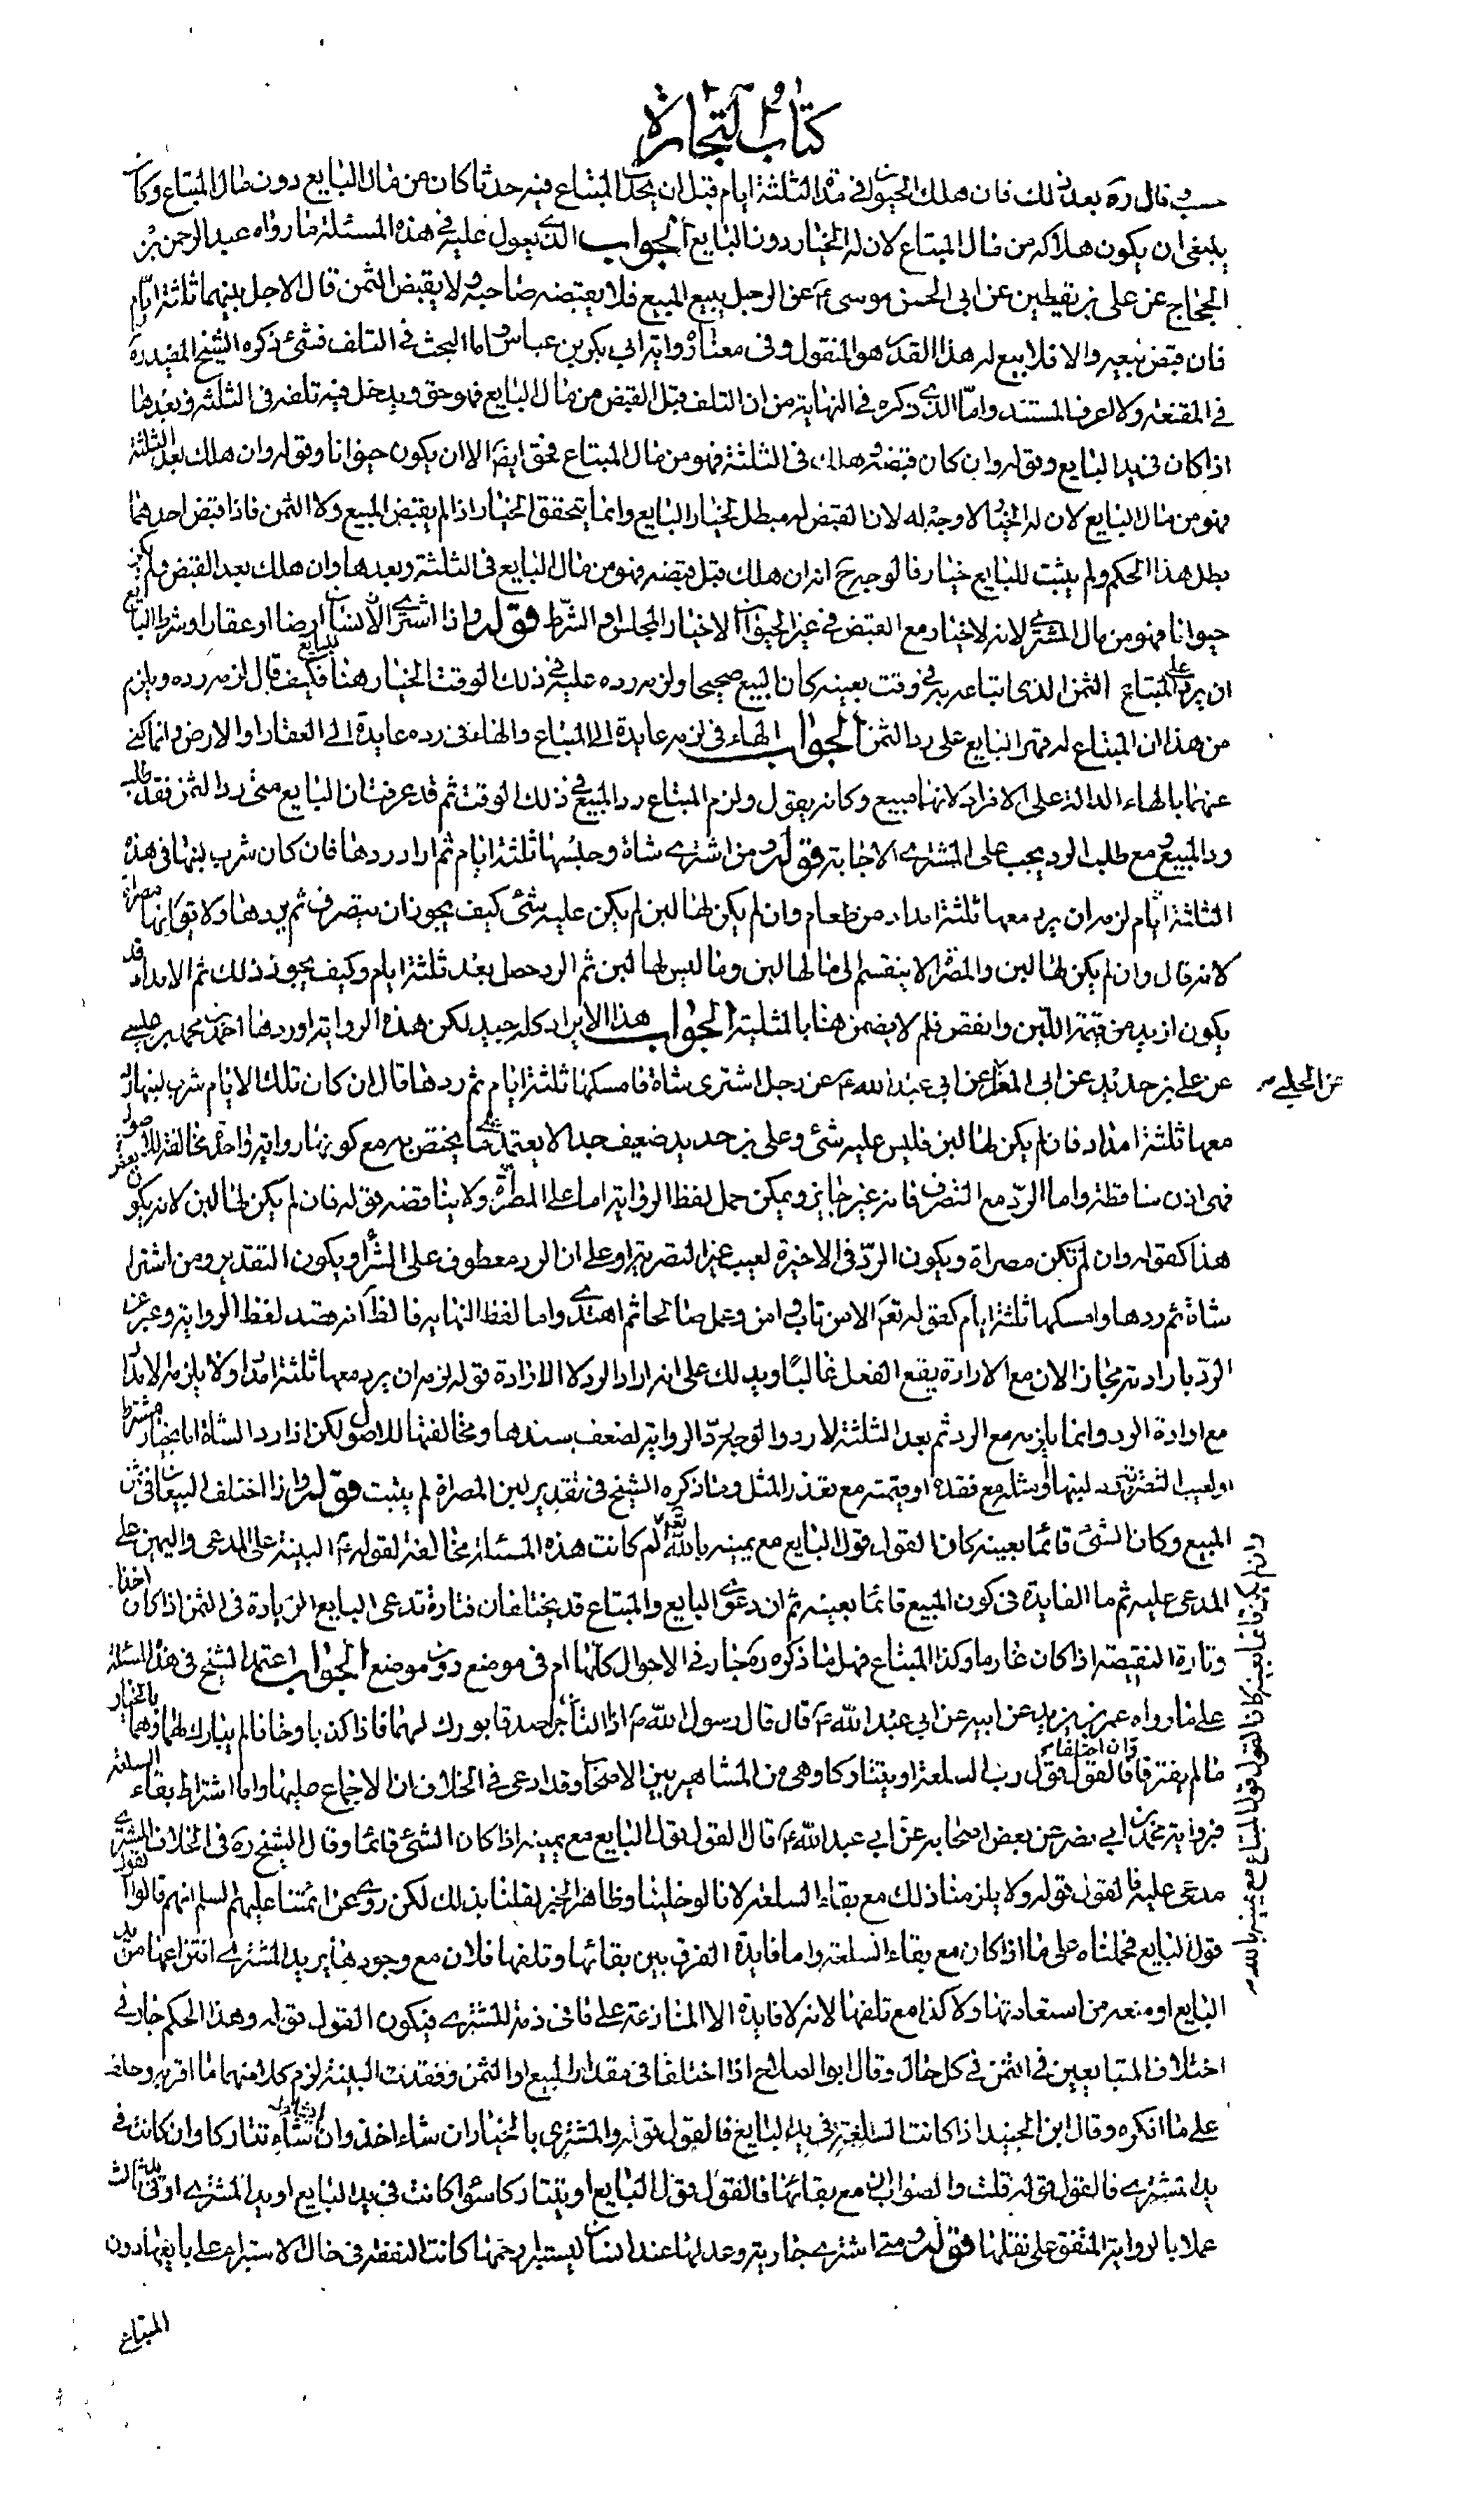 كتاب التجارة
حسب قال ره بعد ذلك فان هلك الحيوان في مدة الثلثة ايام قبل ان يحدث المبتاع فيه حدثا كان من مال البايع دون مال المبتاع وكان
ينبغى ان يكون هلاكه من مال المبتاع لان له الخيار دون البايع الجواب الذي يعول عليه في هذه المسئلة ما رواه عبد الرحمن بن
الحجاج عن على بن يقطين عن ابى الحسن موسى ع عن الرجل يبيع المبيع فلا يقبضه صاحبه ولا يقبض الثمن قال الاجل بينهما ثلثة ايام
فان قبض بيعه والا فلا بيع له هذا القدر هو المنقول وفى معناه رواية ابي بكر بن عياش واما البحث في التلف فشئ ذكره الشيخ المفيد ره
في المقنعة ولا اعرف المستند واما الذي ذكره في النهاية من ان التلف قبل القبض من مال البايع فهو حق ويدخل فيه تلفه في الثلثة وبعدها
اذا كان في يد البايع وقوله وان كان قبضه وهلك في الثلثة فهو من مال المبتاع فحق ايضا الا ان يكون حيوانا وقوله وان هلك بعد الثلثة
فهو من مال البايع لان له الخيار لا وجه له لان القبض له مبطل لخيار البايع وانما يتحقق الخيار اذا لم يقبض المبيع ولا الثمن فاذا قبض احدهما
بطل هذا الحكم ولم يثبت للبايع خيار فالوجه انه ان هلك قبل قبضه فهو من مال البايع في الثلثة وبعدها وان هلك بعد القبض ولم يكن
حيوانا فهو من مال المشتري لانه لا خيار مع القبض في غير الحيوان الا خيار المجلس او الشرط قوله واذا اشترى الانسان ارضا او عقارا وشرط البايع
ان يرد على المبتاع الثمن الذى ابتاعه به في وقت بعينه كان البيع صحيحا ولزمه رده عليه في ذلك الوقت الخيار هنا للبايع فكيف قال لزمه رده ويلزم
من هذا ان المبتاع له قهر البايع على رد الثمن الجواب الهاء في لزمه عايدة الى المبتاع والهاء في رده عايدة الى العقار او الارض وانما كنى
عنهما بالهاء الدالة على الافراد لانهما مبيع وكانه يقول ولزم المبتاع رد المبيع في ذلك الوقت ثم قد عرفت ان البايع متى رد الثمن فقد طلب
رد المبيع ومع طلب الرد يجب على المشتري الاجابة قوله ومن اشترى شاة وحلبها ثلثة ايام ثم اراد ردها فان كان شرب لبنها في هذه
الثلثة ايام لزمه ان يرد معها ثلثة امداد من طعام وان لم يكن لها لبن لم يكن عليه شئ كيف يجوز ان يتصرف ثم يردها ولا تقول انها مصراة
لانه قال وان لم يكن لها لبن والمصراة لا ينقسم الى ما لها لبن وما ليس لها لبن ثم الرد حصل بعد ثلثة ايام وكيف يجوز ذلك ثم الامداد قد
يكون ازيد من قيمة اللبن وانقص فلم لا يضمن هنا بالمثلية الجواب هذا الايراد كله جيد لكن هذه الرواية اوردها احمد بن محمد بن عيسى
عن على بن حديد عن ابى المعزا عن الحلبي عن ابي عبد الله ع عن رجل اشترى شاة فامسكها ثلثة ايام ثم ردها قال ان كان تلك الايام شرب لبنها رد
معها ثلثة امداد فان لم يكن لها لبن فليس عليه شئ وعلى بن حديد ضعيف جدا لا يعتمد على ما يختص به مع كونها رواية واحدة مخالفة للاصول
فهى اذن ساقطة واما الرد مع التصرف فانه غير جايز ويمكن حمل لفظ الرواية اما على المصراة ولا يناقضه قوله فان لم يكن لها لبن لانه يكون
هذا كقوله وان لم تكن مصراة ويكون الرد في الاخيرة لعيب غير التصرية او على ان الرد معطوف على الشراء ويكون التقدير ومن اشترى
شاة ثم ردها وامسكها ثلثة ايام كقوله تعم الا من تاب وامن وعمل صالحا ثم اهتدى واما لفظ النهاية فالظ انه قصد لفظ الرواية وعبر عن
الرد بارادته مجازا لان مع الارادة يقع الفعل غالبا ويدلك على انه اراد الرد لا الارادة قوله لزمه ان يرد معها ثلثة امداد ولا يلزمه الامداد
مع ارادة الرد وانما يلزمه مع الرد ثم بعد الثلثة لا رد والوجه رد الرواية لضعف سندها ومخالفتها للاصول لكن اذا رد الشاة اما بخيار مشترط
او لعيب التصرية رد لبنها او مثله مع فقده او قيمته مع تعذر المثل وما ذكره الشيخ في تقدير لبن المصراة لم يثبت قوله واذا اختلف البيعان في ثمن
المبيع وكان الشئ قائما بعينه كان القول قول البايع مع يمينه بالله تعالى لم كانت هذه المسئلة مخالفة لقوله ع البينة على المدعى واليمين على
وان لم يكن قائما بعينه كان القول قول المبتاع مع يمينه بالله
المدعى عليه ثم ما الفايدة في كون المبيع قائما بعينه ثم ان دعوى البايع والمبتاع قد يختلفان فتارة تدعى البايع الزيادة في الثمن اذا كان اخذا
وتارة النقيصة اذا كان غارما وكذا المبتاع فهل ما ذكره ره جار في الاحوال كلها ام في موضع دون موضع الجواب اعتمد الشيخ في هذه المسئلة
على ما رواه عمر بن يزيد عن ابيه عن ابي عبد الله ع قال قال رسول الله ص اذا التاجران صدقا بورك لهما فاذا كذبا وخانا لم يبارك لهما وهما بالخيار
ما لم يفترقا فان اختلفا فالقول قول رب السلعة او يتتاركا وهى من المشاهير بين الاصحاب وقد ادعى في الخلاف ان الاجماع عليها واما اشتراط بقاء السلعة
فبرواية محمد بن ابي نصر عن بعض اصحابه عن ابي عبد الله ع قال القول قول البايع مع يمينه اذا كان الشئ قائما وقال الشيخ ره في الخلاف المشتري
مدعى عليه فالقول قوله ولا يلزمنا ذلك مع بقاء السلعة لانا لو خلينا وظاهر الخبر لقلنا بذلك لكن روى عن ائمتنا عليهم السلم انهم قالوا القول
قول البايع فحملناه على ما اذا كان مع بقاء السلعة واما فايدة الفرق بين بقائها وتلفها فلان مع وجودها يريد المشتري انتزاعها من يد
البايع او منعه من استعادتها ولا كذا مع تلفها لانه لا فايدة الا المنازعة على ما في ذمة المشتري فيكون القول قوله وهذا الحكم جار في
اختلاف المتبايعين في الثمن في كل حال وقال ابو الصلاح اذا اختلفا في مقدار المبيع او الثمن وفقدت البينة لزم كلا منهما ما اقر به وحلف
على ما انكره وقال ابن الجنيد اذا كانت السلعة في يد البايع فالقول قوله والمشترى بالخيار ان شاء اخذ وان شاء تتاركا وان كانت في
يد المشتري فالقول قوله قلت والصواب ان مع بقائها فالقول قول البايع او يتتاركا سواء كانت في يد البايع او يد المشتري او في يد ثالث
عملا بالرواية المتفق على نقلها قوله ومتى اشترى جارية وعدلها عند انسان ليستبرء رحمها كانت النفقة في حال الاستبراء على بايعها دون
المبتاع